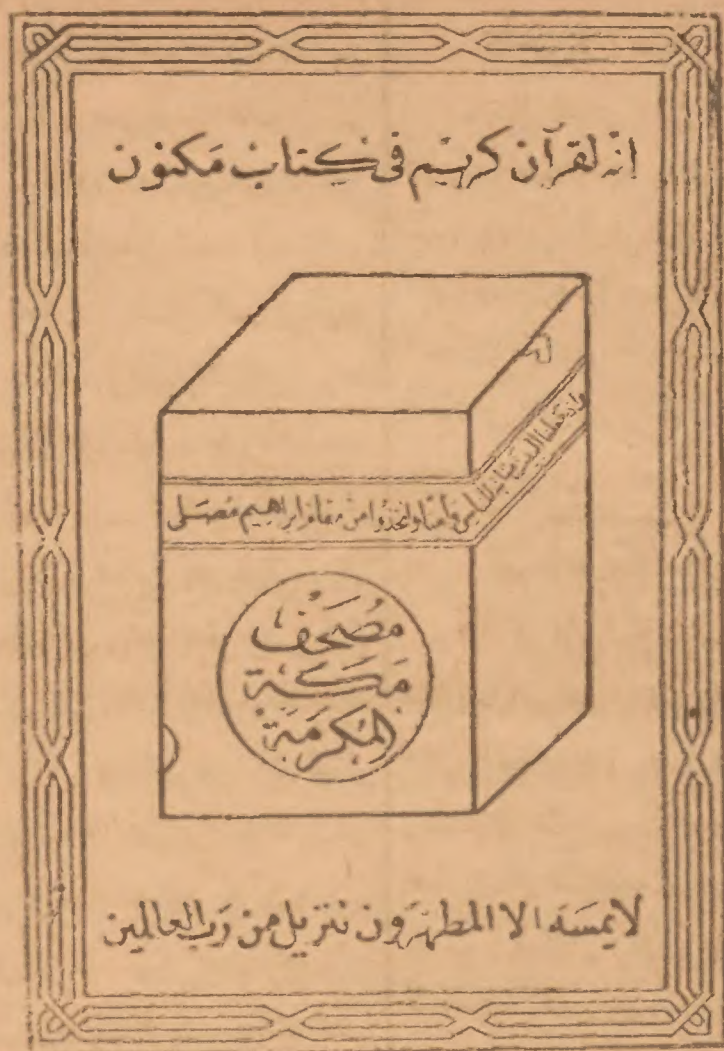 انه لقرآن كريم فى كتاب مكنون
واذ جعلنا البيت مثابة للناس وامنا واتخذوا من مقام ابراهيم مصلى
مُصحَف
مَكة
المكرمة
لا يمسه الا المطهرون تنزيل من رب العالمين